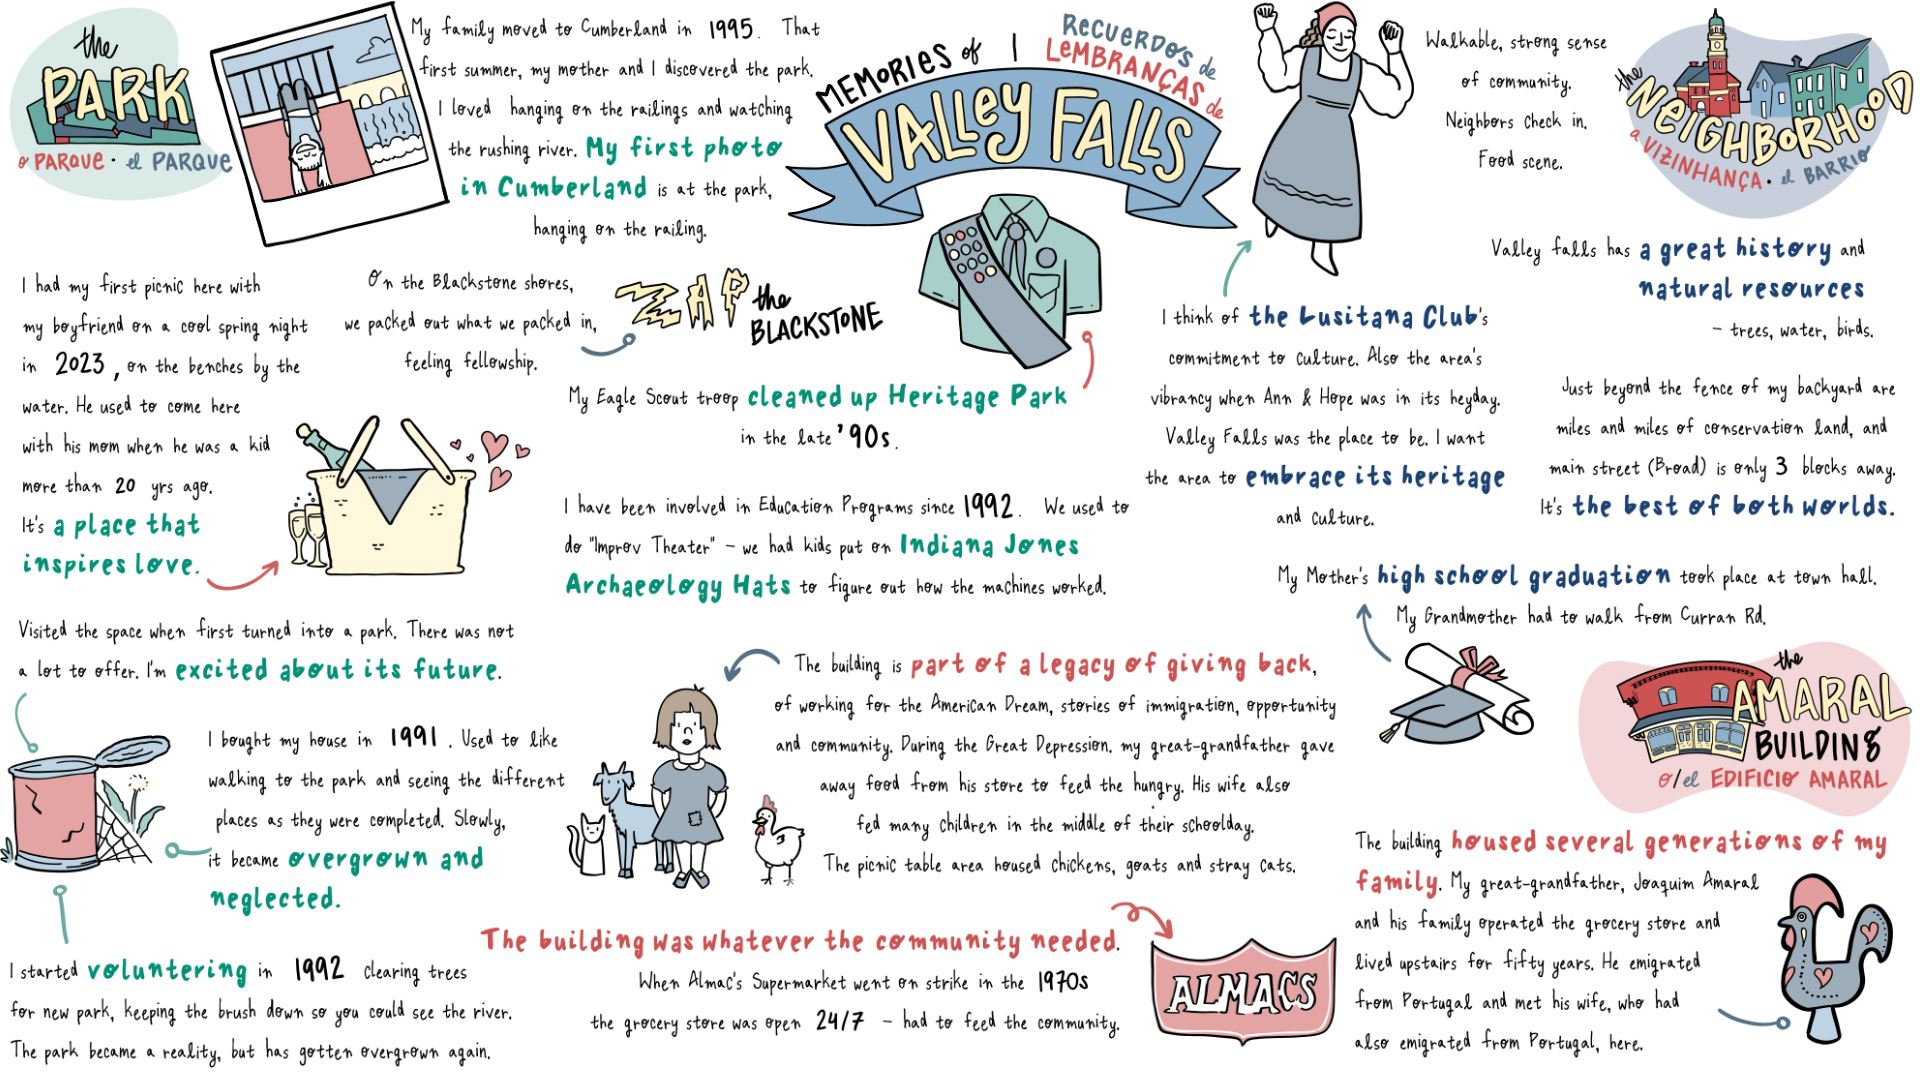 MEMORIES of | RECUERDOS de
LEMBRANÇAS de
VALLEY FALLS
the
PARK
o PARQUE · el PARQUE
My family moved to Cumberland in 1995. That
first summer, my mother and I discovered the park.
I loved hanging on the railings and watching
the rushing river. My first photo
in Cumberland is at the park,
hanging on the railing.
I had my first picnic here with
my boyfriend on a cool spring night
in 2023, on the benches by the
water. He used to come here
with his mom when he was a kid
more than 20 yrs ago.
It's a place that
inspires love.
On the Blackstone shores,
we packed out what we packed in,
feeling fellowship.
ZAP the
BLACKSTONE
My Eagle Scout troop cleaned up Heritage Park
in the late '90s.
I have been involved in Education Programs since 1992. We used to
do "Improv Theater" - we had kids put on Indiana Jones
Archaeology Hats to figure out how the machines worked.
Visited the space when first turned into a park. There was not
a lot to offer. I'm excited about its future.
I bought my house in 1991. Used to like
walking to the park and seeing the different
places as they were completed. Slowly,
it became overgrown and
neglected.
I started voluntering in 1992 clearing trees
for new park, keeping the brush down so you could see the river.
The park became a reality, but has gotten overgrown again.
the
NEIGHBORHOOD
a VIZINHANÇA · el BARRIO
Walkable, strong sense
of community.
Neighbors check in.
Food scene.
Valley falls has a great history and
natural resources
- trees, water, birds.
I think of the Lusitana Club's
commitment to culture. Also the area's
vibrancy when Ann & Hope was in its heyday.
Valley Falls was the place to be. I want
the area to embrace its heritage
and culture.
Just beyond the fence of my backyard are
miles and miles of conservation land, and
main street (Broad) is only 3 blocks away.
It's the best of both worlds.
My Mother's high school graduation took place at town hall.
My Grandmother had to walk from Curran Rd.
the
AMARAL
BUILDING
o/el EDIFICIO AMARAL
The building is part of a legacy of giving back,
of working for the American Dream, stories of immigration, opportunity
and community. During the Great Depression. my great-grandfather gave
away food from his store to feed the hungry. His wife also
fed many children in the middle of their schoolday.
The picnic table area housed chickens, goats and stray cats.
The building was whatever the community needed.
When Almac's Supermarket went on strike in the 1970s
the grocery store was open 24/7 - had to feed the community.
ALMACS
The building housed several generations of my
family. My great-grandfather, Joaquim Amaral
and his family operated the grocery store and
lived upstairs for fifty years. He emigrated
from Portugal and met his wife, who had
also emigrated from Portugal, here.